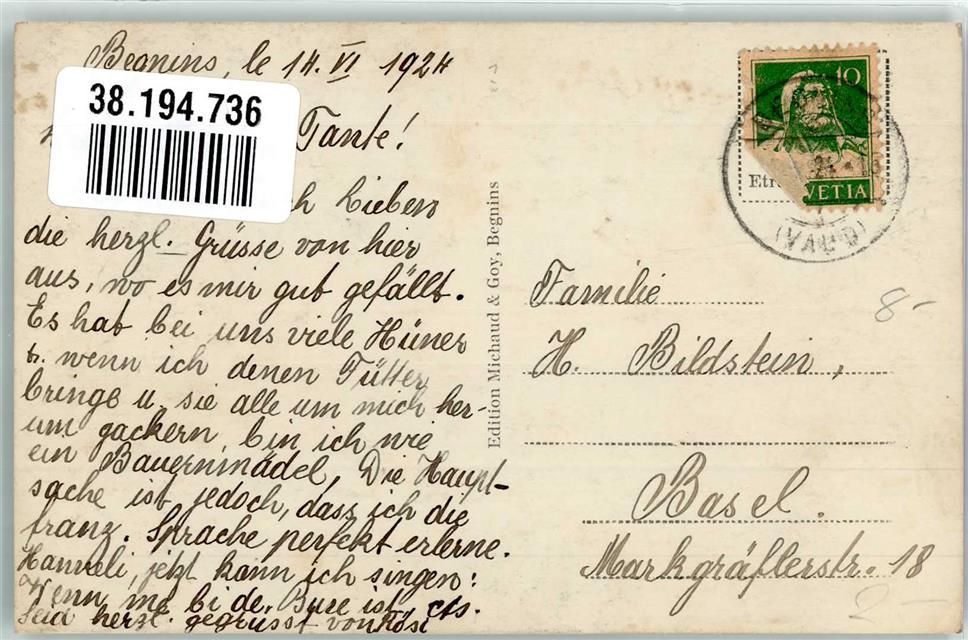 Begnins, le 14. VI 1924
38.194.736
Tante!
Liebens
die herzl. Grüsse von hier
aus, wo es mir gut gefällt.
Es hat bei uns viele Hüner
u. wenn ich denen Fütter
bringe u. sie alle um mich her-
um gackern, bin ich wie
ein Bauernmädel. Die Haupt-
sache ist jedoch, dass ich die
franz. Sprache perfekt erlerne.
Hanneli, jetzt kann ich singen:
Wenn me bi de Bure ist, cts.
Seid herzl. gegrüsst von Rösi
Edition Michaud & Goy, Begnins
10
HELVETIA
(VAUD)
Familie
H. Bildstein,
Basel.
Markgräflerstr. 18
8-
2-